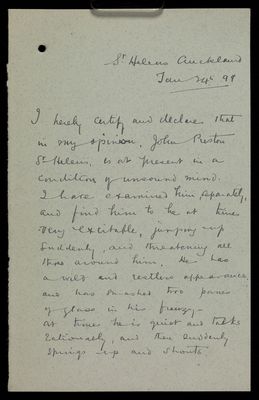 St Helens Auckland
Jan 24th 98
I hereby certify and declare that
in my opinion, John Preston
St Helens, is at present in a
condition of unsound mind.
I have examined him separately,
and find him to be at times
very excitable, jumping up
suddenly, and threatening all
those around him. He has
a wild and restless appearance
and has smashed two panes
of glass in his frenzy.-
at times he is quiet and talks
rationally, and then suddenly
springs up and shouts